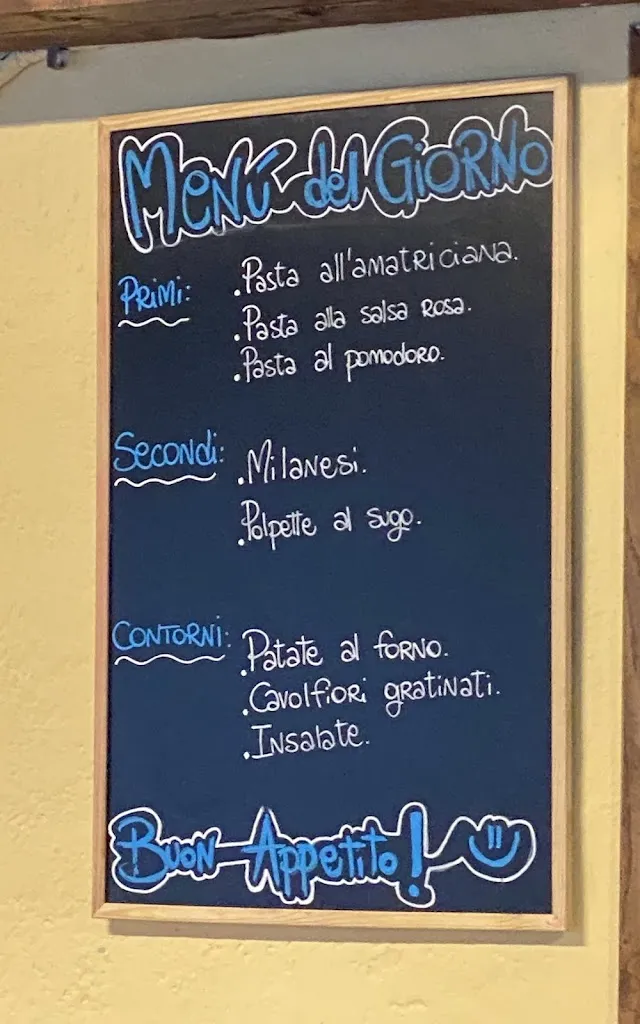 Menú del Giorno
Primi:
.Pasta all'amatriciana.
.Pasta alla salsa rosa.
.Pasta al pomodoro.
Secondi:
.Milanesi.
.Polpette al sugo.
Contorni:
.Patate al forno.
.Cavolfiori gratinati.
.Insalate.
Buon Appetito!